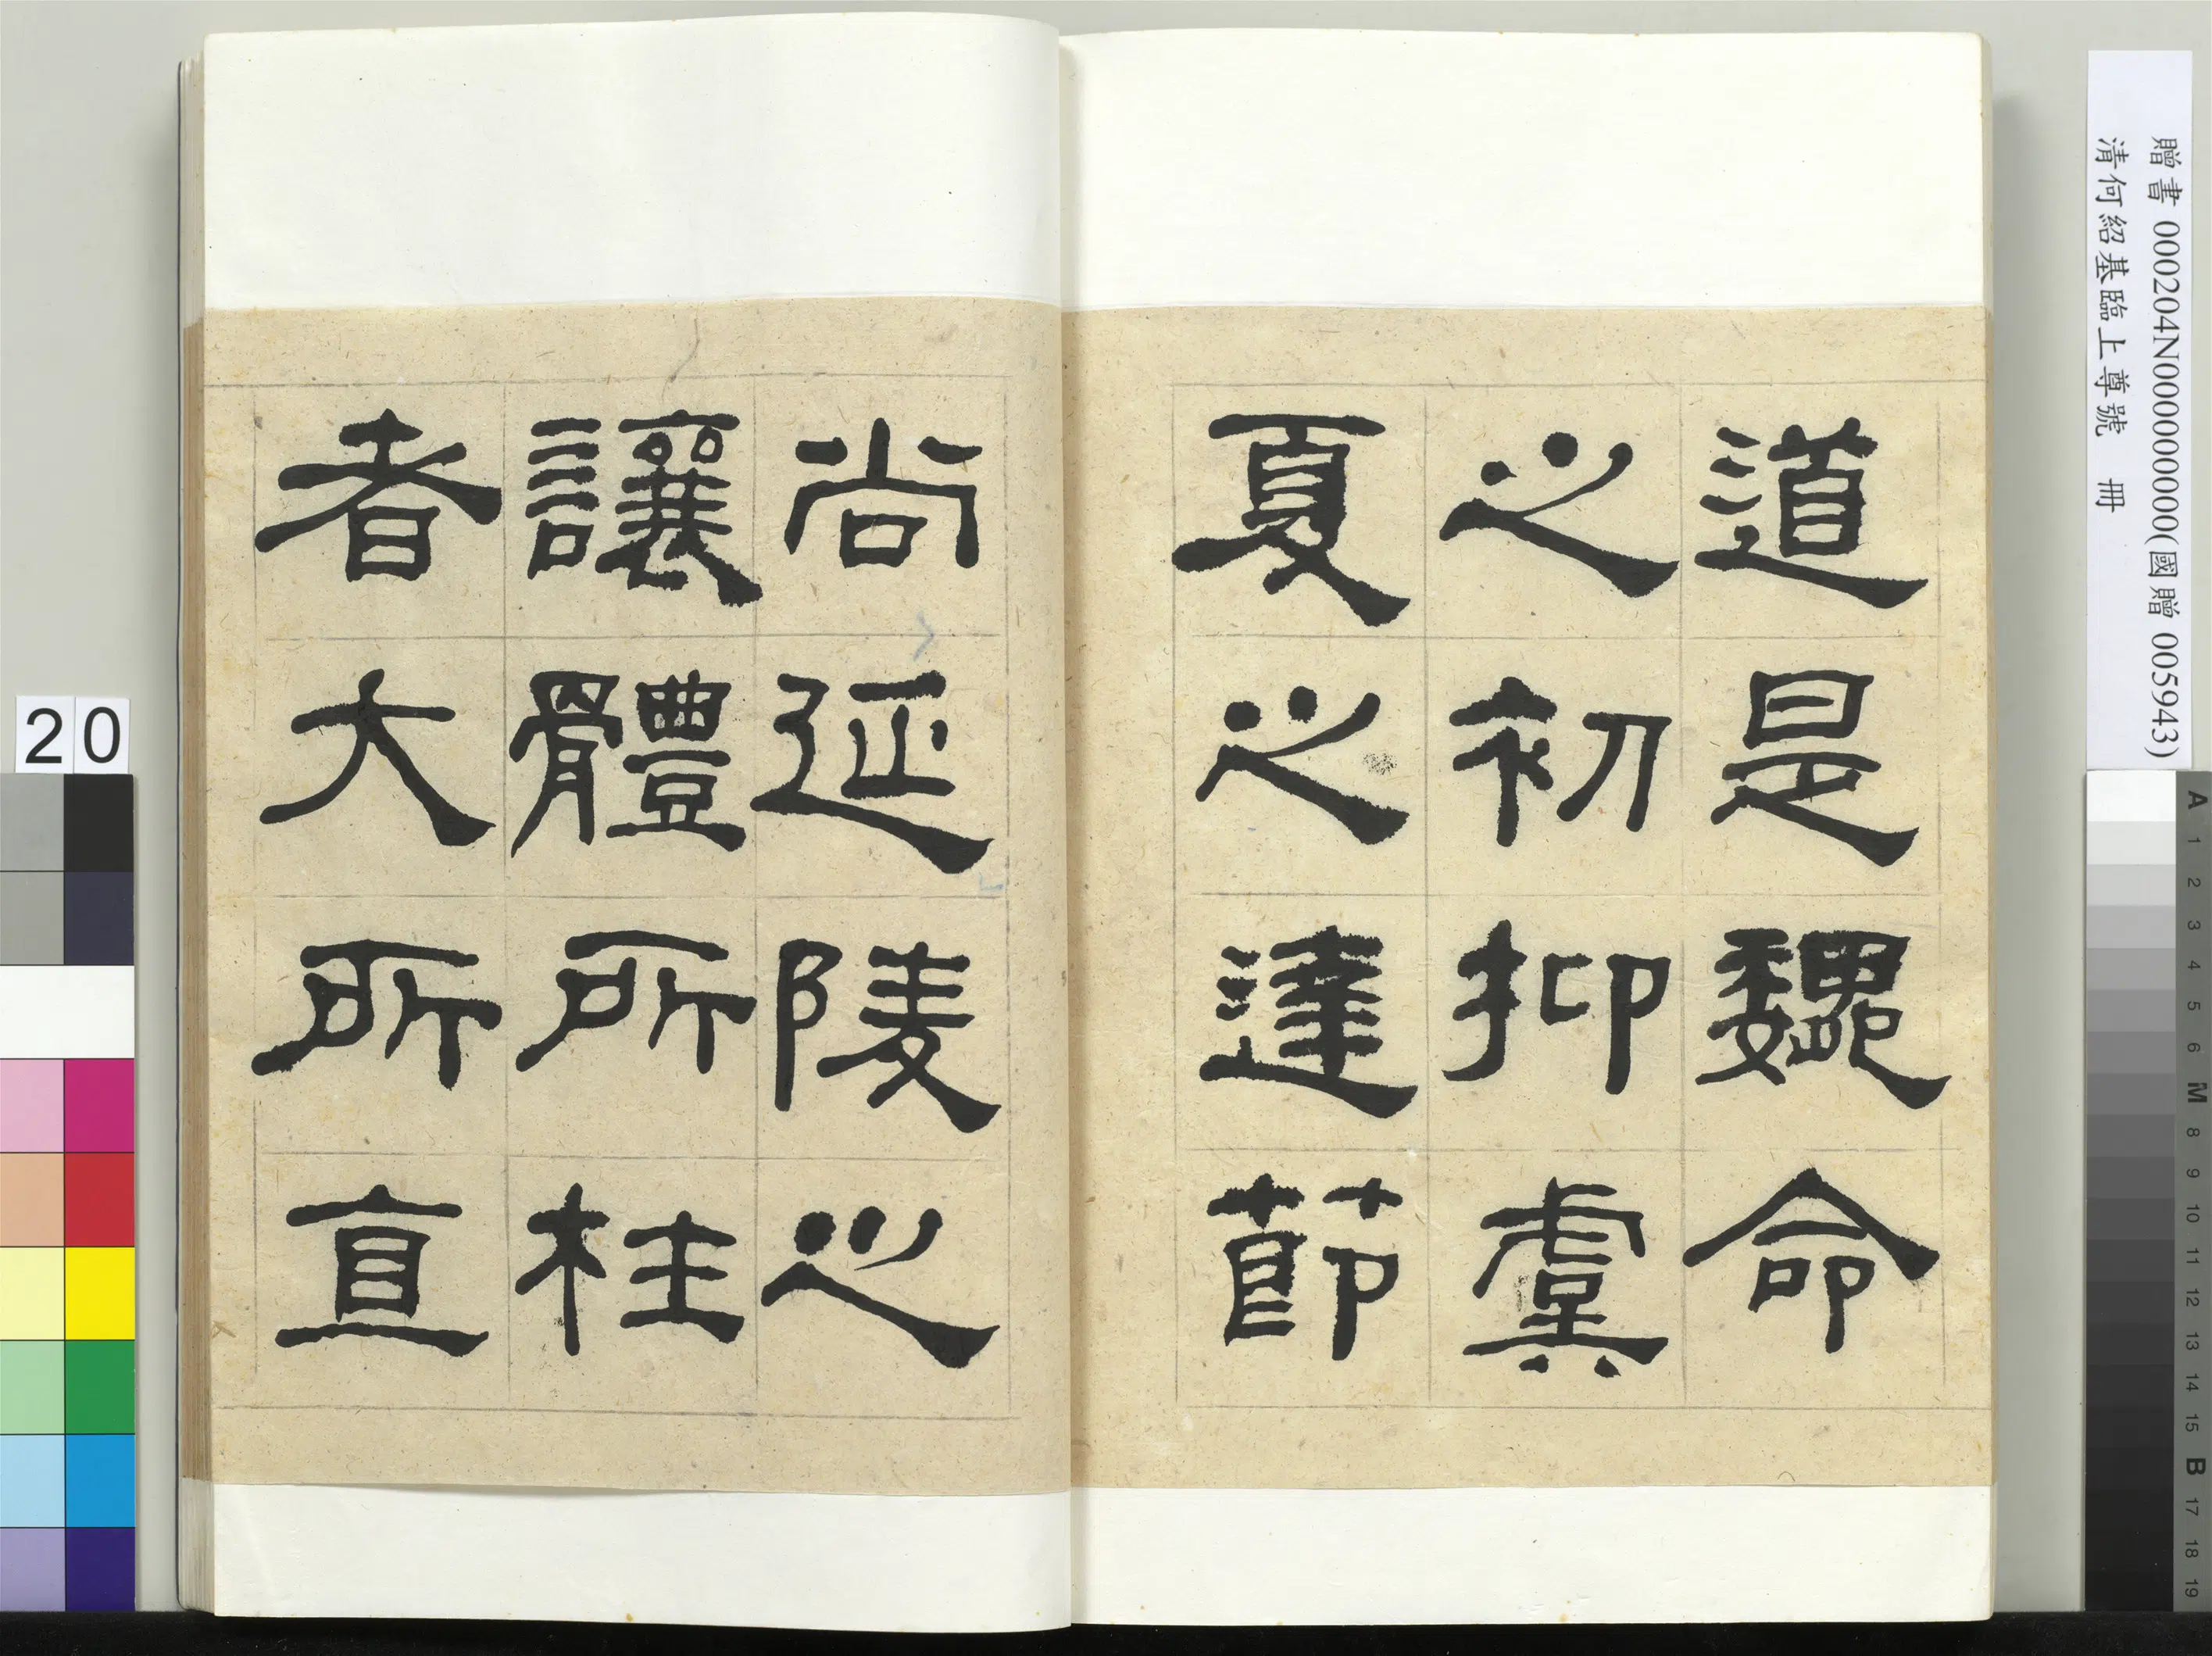 道是魏命
之初抑虞
夏之達節
尚延陵之
讓體所枉
者大所直
贈書 000204N000000000(國贈 005943)
清何紹基臨上尊號 冊
20
A 1 2 3 4 5 6 M 8 9 10 11 12 13 14 15 B 17 18 19